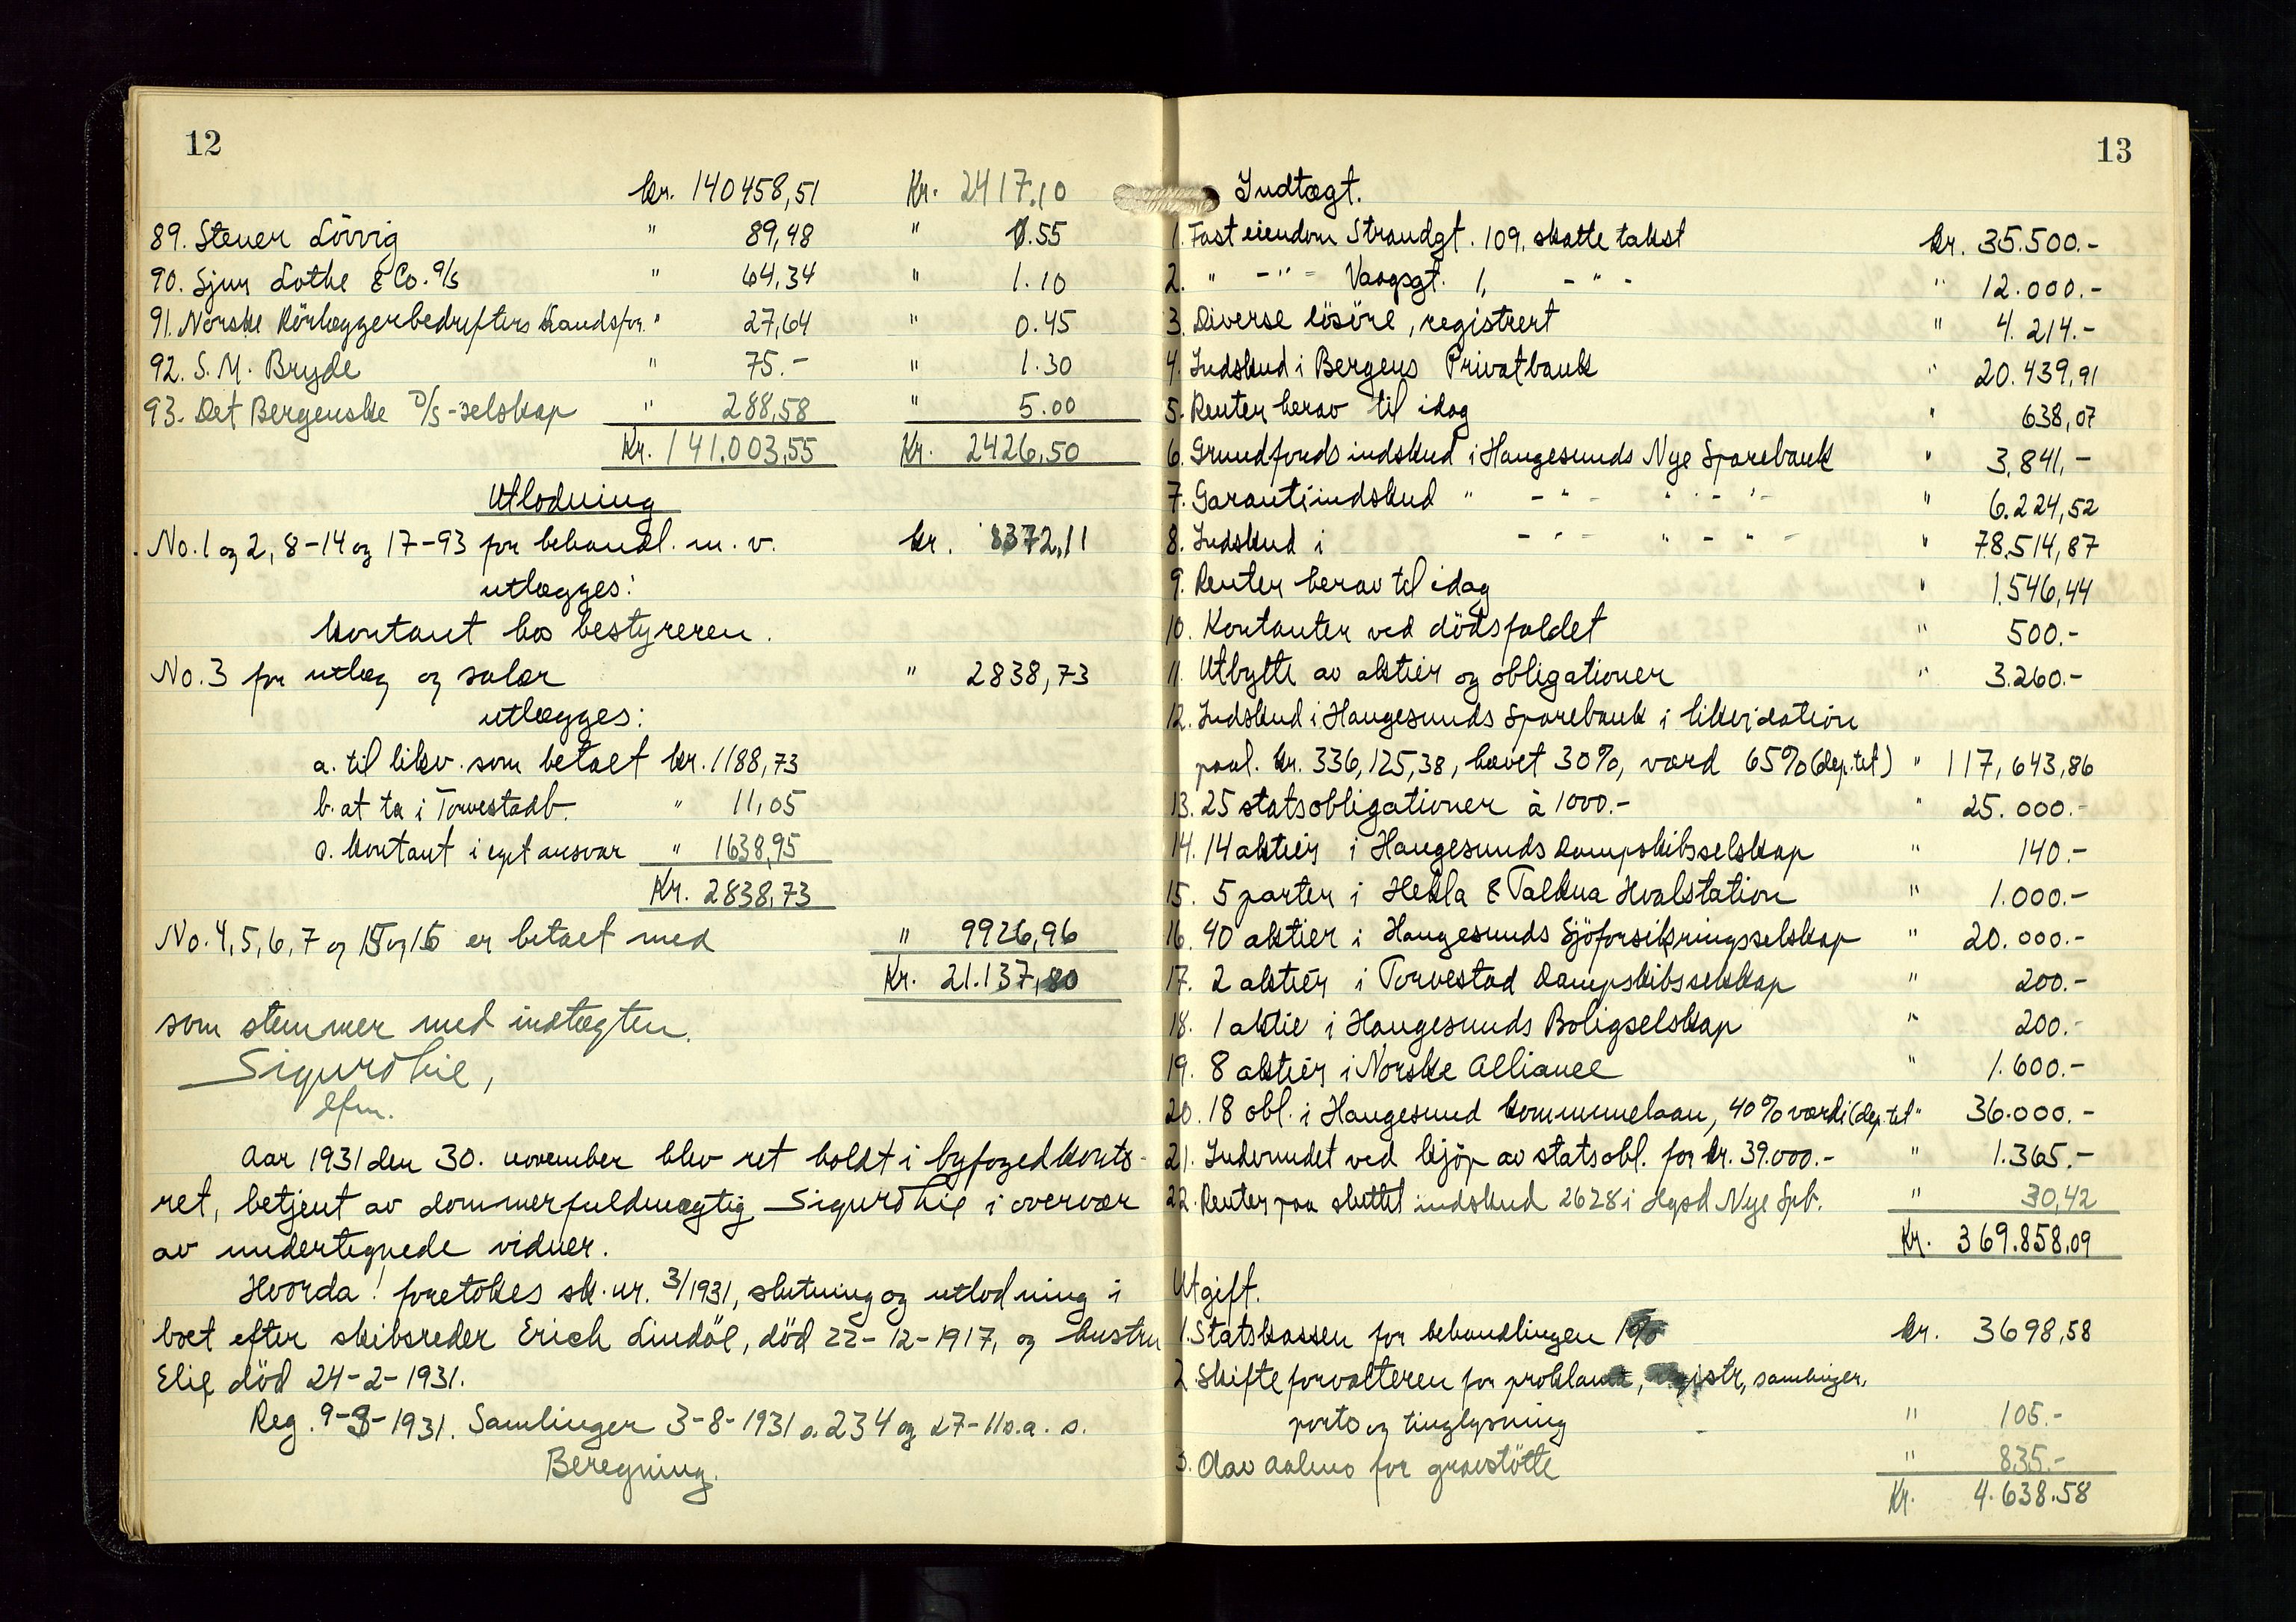 12
kr. 140458,51 Kr. 2417.10
89. Stener Lövvig " 89,48 " 1.55
90. Sjur Lothe & Co. a/s " 64,34 " 1.10
91. Norske Rörlæggerbedrifters Landsfor. " 27,64 " 0.45
92. S. M. Bryde " 75.- " 1.30
93. Det Bergenske D/S-selskap " 288,58 " 5.00
Kr. 141.003,55 Kr. 2426,50
Utlodning
No. 1 og 2, 8-14 og 17-93 for behandl. m. v. kr. 8372,11
utlægges:
kontant hos bestyreren.
No. 3 for utlæg og salær " 2838,73
utlægges:
a. til likv. som betalt kr. 1188,73
b. at ta i Torvestadb. " 11,05
c. kontant i eget ansvar " 1638,95
Kr. 2838,73
No. 4, 5, 6, 7 og 15 og 16 er betalt med " 9926,96
Kr. 21.137,80
som stemmer med indtægten.
Sigurd Lie,
dfm.
Aar 1931 den 30. november blev ret holdt i byfogedkonto-
ret, betjent av dommerfuldmægtig Sigurd Lie i overvær
av undertegnede vidner.
Hvorda! foretokes sk. nr. 3/1931, slutning og utlodning i
boet efter skibsreder Erich Lindöe, död 22-12-1917, og hustru
Elie död 24-2-1931.
Reg. 9-3-1931. Samlinger 3-8-1931 s. 234 og 27-11 s.a. s.
Beregning.
13
Indtægt.
1. Fast eiendom Strandgt. 109, skatte takst kr. 35.500.-
2. " - " - Vaagsgt. 1, - " - " 12.000.-
3. Diverse lösöre, registrert " 4.214.-
4. Indskud i Bergens Privatbank " 20.439,91
5. Renter herav til idag " 638,07
6. Grundfonds indskud i Haugesunds Nye Sparebank " 3.841,-
7. Garantiindskud " - " - " - " - " 6.224,52
8. Indskud i - " - " - " - " 78.514,87
9. Renter herav til idag " 1.546,44
10. Kontanter ved dödsfaldet " 500.-
11. Utbytte av aktier og obligationer " 3.260.-
12. Indskud i Haugesunds Sparebank i likvidation
paal. kr. 336,125,38, hævet 30%, værd 65% (dep.tet) " 117,643,86
13. 25 statsobligationer à 1000.- " 25.000.-
14. 14 aktier i Haugesunds Dampskibsselskap " 140.-
15. 5 parter i Hekla & Talkna Hvalstation " 1.000.-
16. 40 aktier i Haugesunds Sjöforsikringsselskap " 20.000.-
17. 2 aktier i Torvestad Dampskibsselskap " 200.-
18. 1 aktie i Haugesunds Boligselskap " 200.-
19. 8 aktier i Norske Alliance " 1.600.-
20. 18 obl. i Haugesund kommunelaan, 40% værdi (dep.tet " 36.000.-
21. Indvundet ved kjöp av statsobl. for kr. 39.000.- " 1.365.-
22. Renter paa sluttet indskud 2628 i Hgsd Nye Spb. " 30,42
Kr. 369.858,09
Utgift.
1. Statskassen for behandlingen 1% kr. 3698,58
2. Skifteforvalteren for proklama, registr, samlinger,
porto og tinglysning " 105.-
3. Olav Aalmo for gravstötte " 835.-
Kr. 4.638.58